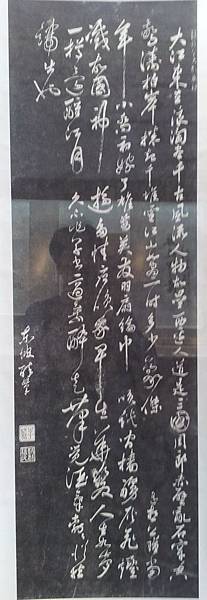 大江東去浪淘盡千古風流人物故壘西邊人道是三國周郎赤壁亂石穿空
驚濤拍岸捲起千堆雪江山如畫一時多少豪傑 遙想公瑾當
年小喬初嫁了雄姿英發羽扇綸巾 笑談間檣艣灰飛煙
滅故國神遊多情應笑我早生華髮人生如夢
一樽還酹江月 久不作草書適乘醉走筆覺酒氣勃勃從指
端出也
東坡醉筆